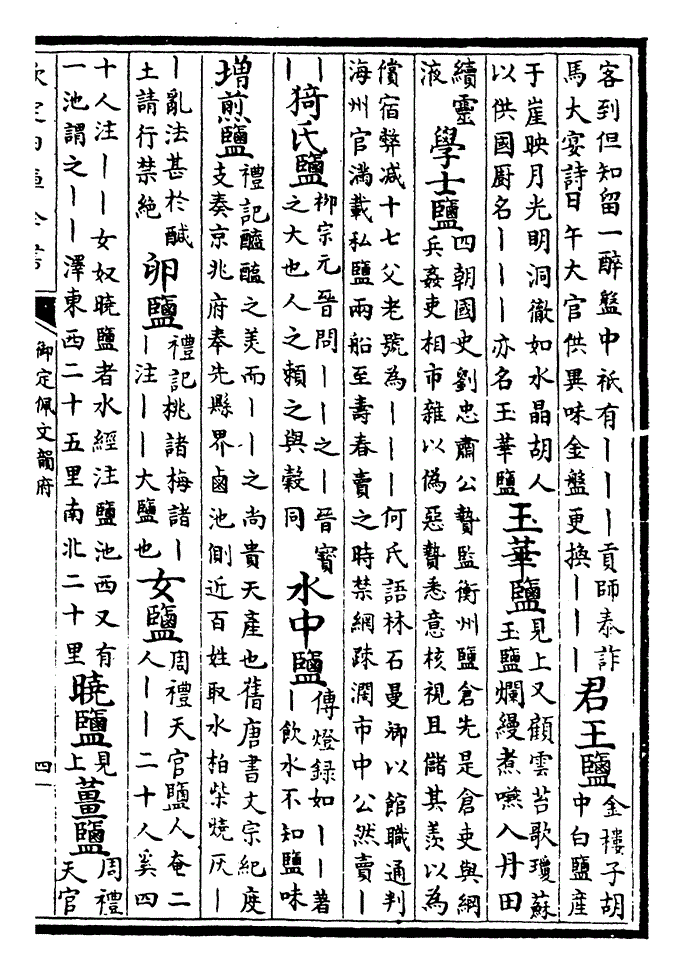 客到但知留一醉盤中祇有｜｜｜貢師泰詐
馬大宴詩日午大官供異味金盤更換｜｜｜
君王鹽
金樓子胡
中白鹽産
于崖映月光明洞徹如水晶胡人
以供國厨名｜｜｜亦名玉華鹽
玉華鹽
見上又顧雲苔歌瓊蘇
玉鹽爛縵煮嚥入丹田
續靈
液
學士鹽
四朝國史劉忠肅公摯監衡州鹽倉先是倉吏與綱
兵姦吏相市雜以偽惡摯悉意核視且儲其羨以為
償宿弊减十七父老號為｜｜｜何氏語林石曼卿以館職通判
海州官滿載私鹽兩船至壽春賣之時禁網疎濶市中公然賣｜
｜
｜
猗氏鹽
栁宗元晉問｜｜之｜晉寳
之大也人之賴之與穀同
水中鹽
傅燈録如｜｜著
｜飲水不知鹽味
増煎鹽
禮記醯醢之美而｜｜之尚貴天產也舊唐書文宗紀度
支奏京兆府奉先縣界鹵池側近百姓取水柏柴燒灰｜
｜亂法甚於鹹
土請行禁絶
卵鹽
禮記桃諸梅諸｜
｜注｜｜大鹽也
女鹽
周禮天官鹽人奄二
人｜｜二十人奚四
十人注｜｜女奴曉鹽者水經注鹽池西又有
一池謂之｜｜澤東西二十五里南北二十里
曉鹽
見
上
薑鹽
周禮
天官
欽定四庫全書
御定佩文韻府
四